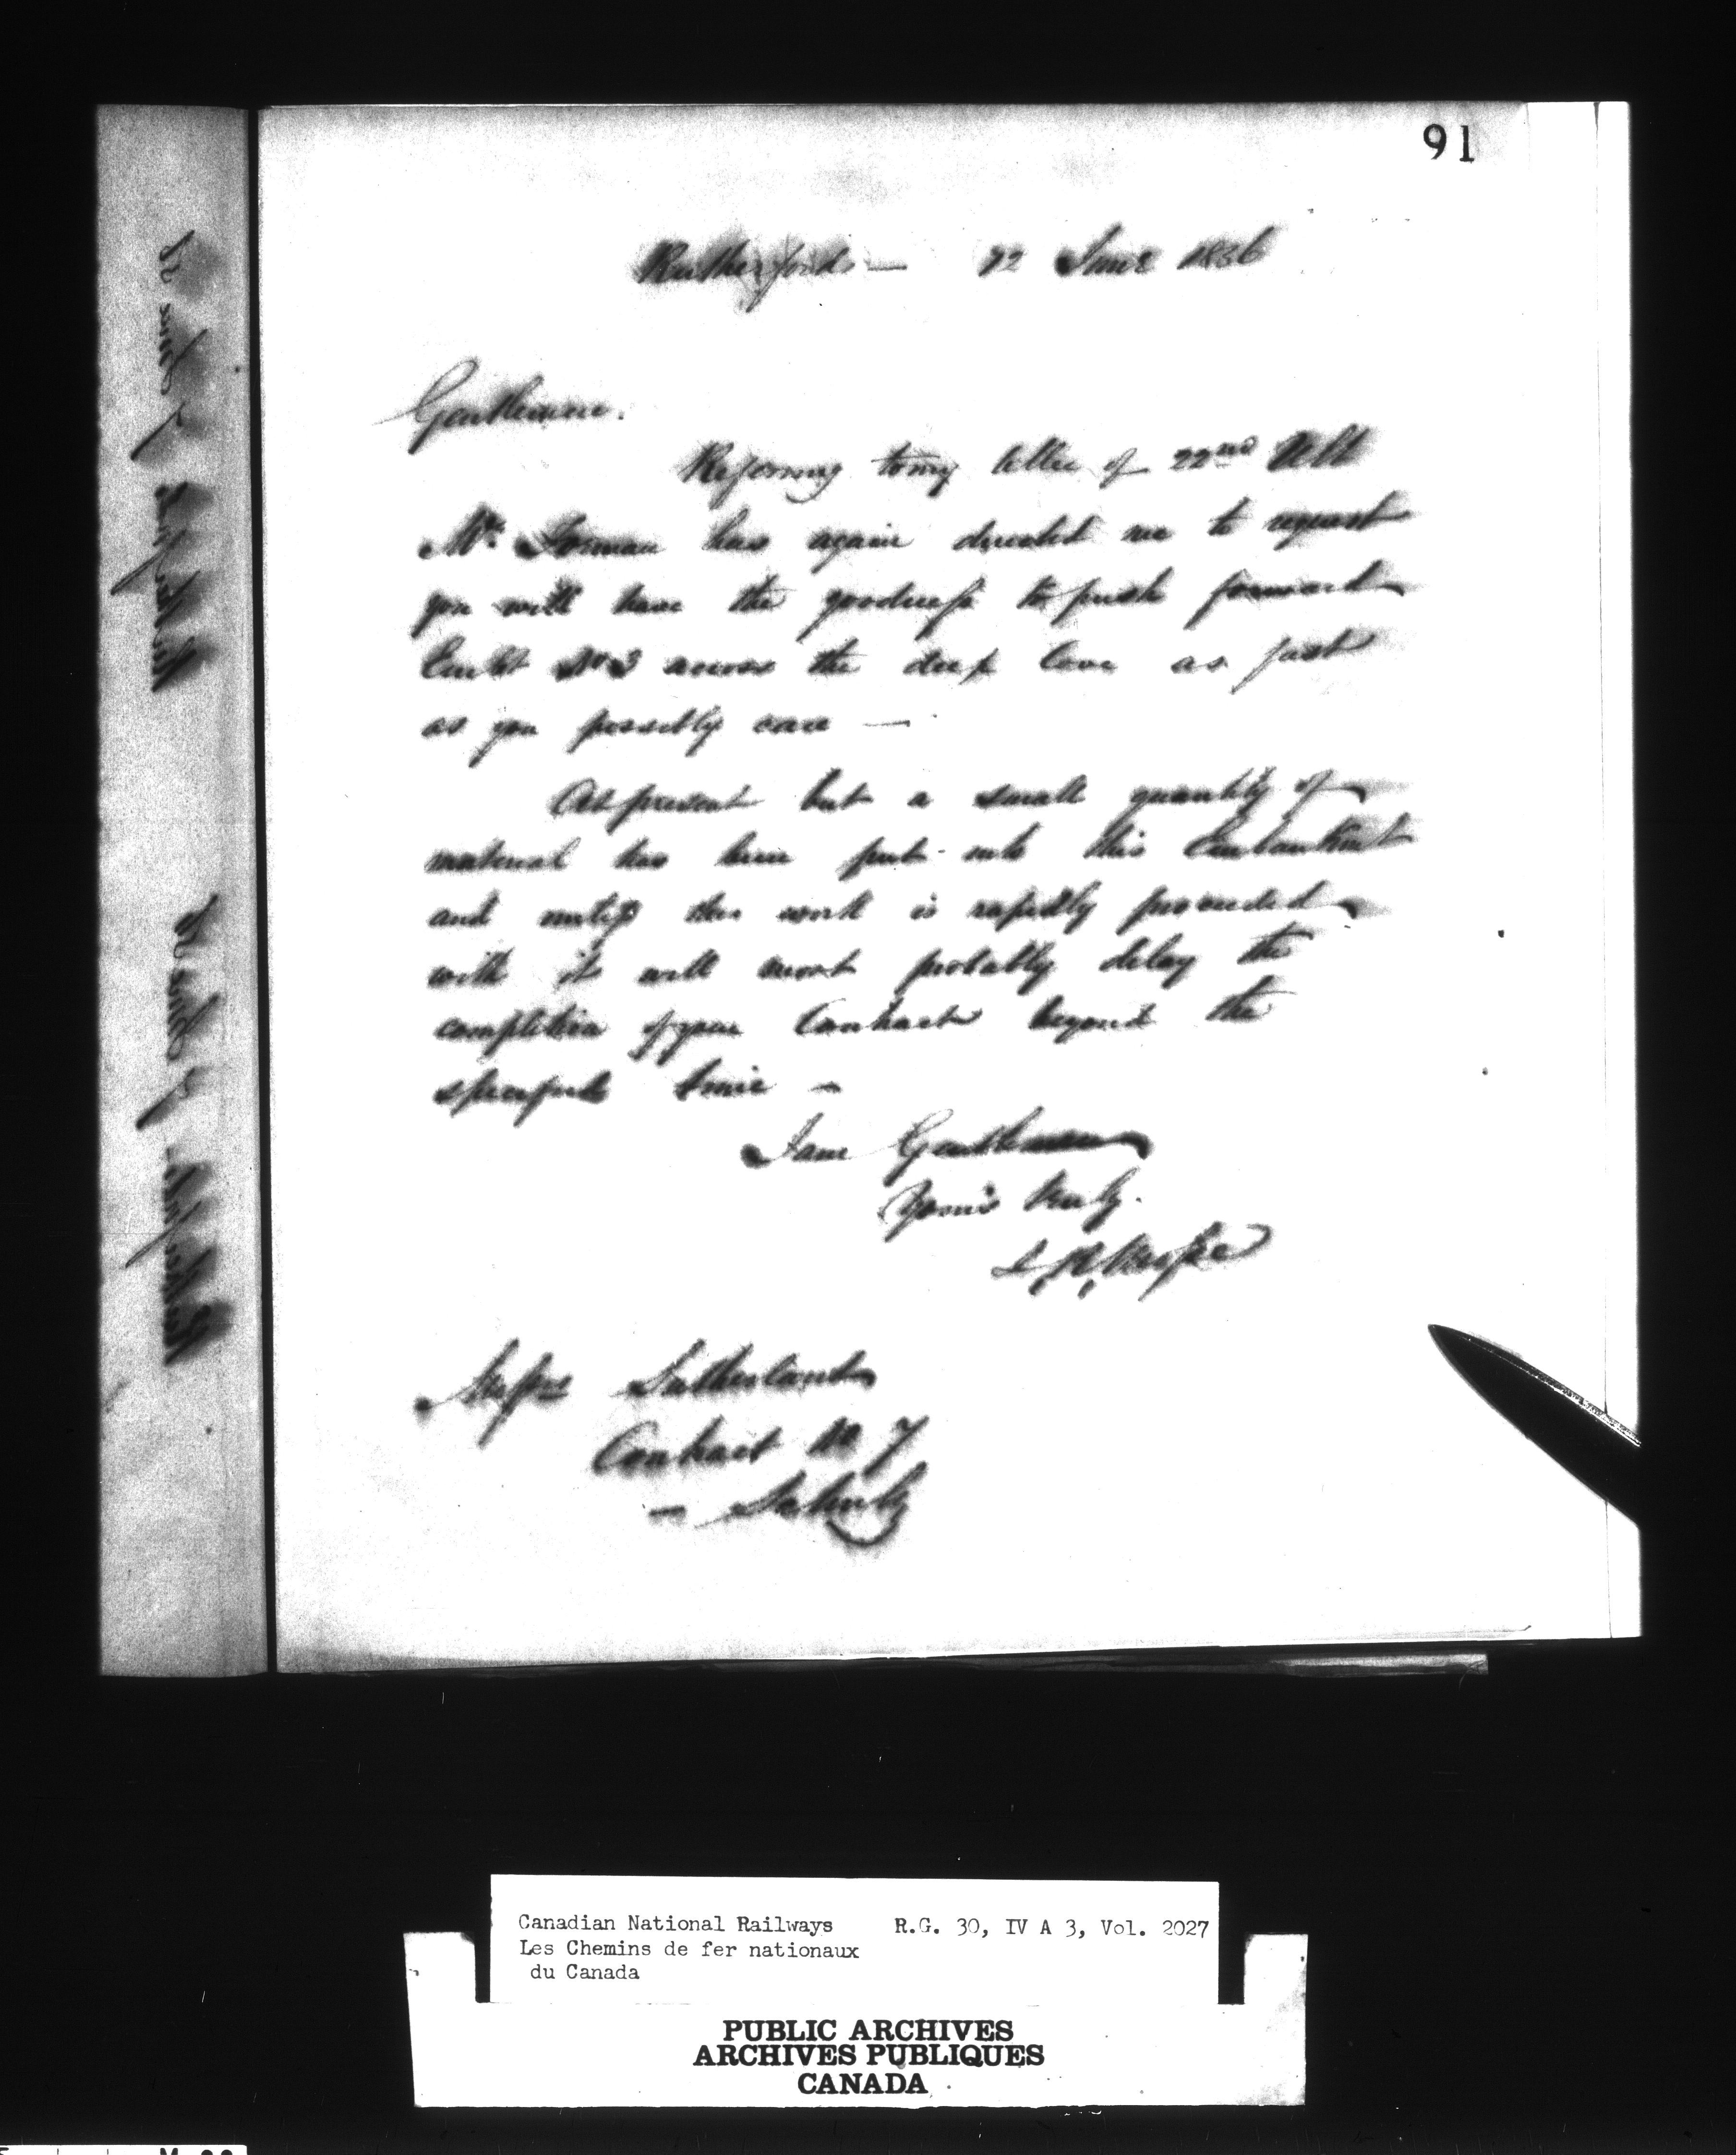 91
Rutherfords — 12 June 1856
Gentlemen.
Referring to my letter of 22nd Ult
Mr. Forman has again directed me to request
you will have the goodness to push forward
Embt No 3 across the deep Cove as fast
as you possibly can —
At present but a small quantity of
material has been put into this Embankmt
and unless the work is rapidly proceeded
with it will most probably delay the
completion of your Contract beyond the
specified time —
I am Gentlemen
Yours truly.
Messrs Sutherlands
Contract No 7
Canadian National Railways R.G. 30, IV A 3, Vol. 2027
Les Chemins de fer nationaux
du Canada
PUBLIC ARCHIVES
ARCHIVES PUBLIQUES
CANADA